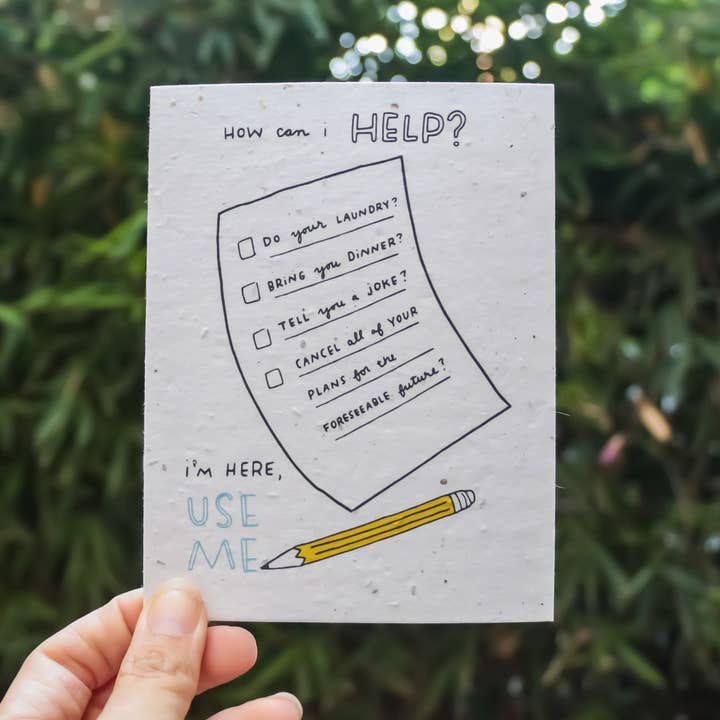 HOW can i HELP?
DO your LAUNDRY?
BRING you DINNER?
TELL you a JOKE?
CANCEL all of YOUR
PLANS for the
FORESEEABLE future?
i'M HERE,
USE
ME